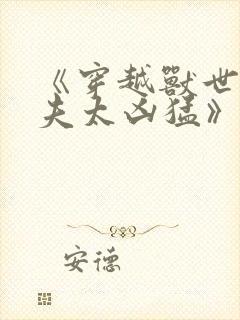 《穿越獸世
夫太凶猛》
安德